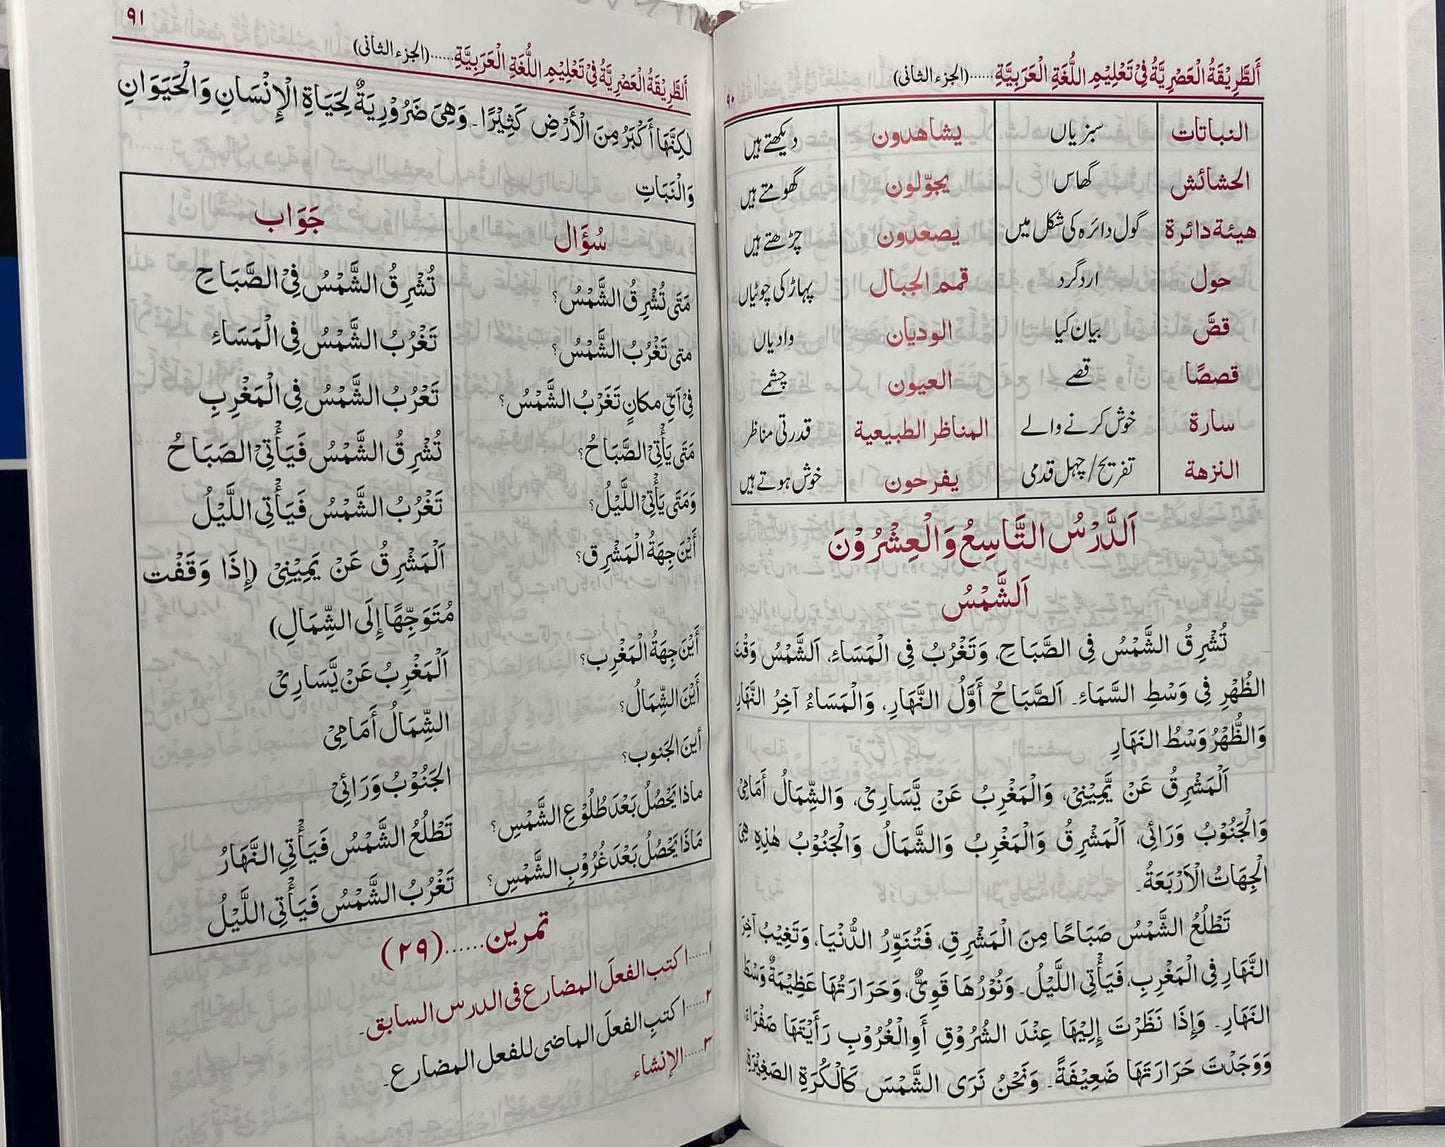 اَلطَّرِيْقَةُ الْعَصْرِيَّةُ فِيْ تَعْلِيْمِ اللُّغَةِ الْعَرَبِيَّةِ......(الجزء الثانی)
۹۰
النباتات سبزیاں يشاهدون دیکھتے ہیں
الحشائش گھاس يجوّلون گھومتے ہیں
هيئة دائرة گول دائرہ کی شکل میں يصعدون چڑھتے ہیں
حول اردگرد قمم الجبال پہاڑ کی چوٹیاں
قصَّ بیان کیا الوديان وادیاں
قصصًا قصے العيون چشمے
سارة خوش کرنے والے المناظر الطبيعية قدرتی مناظر
النزهة تفریح/ چہل قدمی يفرحون خوش ہوتے ہیں
اَلدَّرْسُ التَّاسِعُ وَالْعِشْرُوْنَ
اَلشَّمْسُ
تُشْرِقُ الشَّمْسُ فِي الصَّبَاحِ، وَتَغْرُبُ فِي الْمَسَاءِ، اَلشَّمْسُ وَقْتَ
الظُّهْرِ فِي وَسْطِ السَّمَاءِ۔ اَلصَّبَاحُ أَوَّلُ النَّهَارِ، وَالْمَسَاءُ آخِرُ النَّهَارِ
وَالظُّهْرُ وَسْطُ النَّهَارِ
اَلْمَشْرِقُ عَنْ يَّمِيْنِيْ، وَالْمَغْرِبُ عَنْ يَّسَارِيْ، وَالشِّمَالُ أَمَامِيْ
وَالْجَنُوْبُ وَرَائِي، اَلْمَشْرِقُ وَالْمَغْرِبُ وَالشَّمَالُ وَالْجَنُوْبُ هٰذِهِ هِيَ
الْجِهَاتُ الْاَرْبَعَةُ۔
تَطْلُعُ الشَّمْسُ صَبَاحًا مِنَ الْمَشْرِقِ، فَتُنَوِّرُ الدُّنْيَا، وَتَغِيْبُ آخِرَ
النَّهَارِ فِي الْمَغْرِبِ، فَيَأْتِي اللَّيْلُ۔ وَنُوْرُهَا قَوِيٌّ، وَحَرَارَتُهَا عَظِيْمَةٌ وَسْطَ
النَّهَارِ۔ وَإِذَا نَظَرْتَ إِلَيْهَا عِنْدَ الشُّرُوْقِ أَوِالْغُرُوْبِ رَأَيْتَهَا صَفْرَاءَ،
وَوَجَدْتَ حَرَارَتَهَا ضَعِيْفَةً۔ وَنَحْنُ نَرَى الشَّمْسَ كَالْكُرَةِ الصَّغِيْرَةِ
۹۱
اَلطَّرِيْقَةُ الْعَصْرِيَّةُ فِيْ تَعْلِيْمِ اللُّغَةِ الْعَرَبِيَّةِ......(الجزء الثانی)
لٰكِنَّهَا أَكْبَرُ مِنَ الْأَرْضِ كَثِيْرًا۔ وَهِيَ ضَرُوْرِيَةٌ لِحَيَاةِ الْإِنْسَانِ وَالْحَيَوَانِ
وَالنَّبَاتِ
سُؤَال جَوَاب
مَتَى تُشْرِقُ الشَّمْسُ؟ تُشْرِقُ الشَّمْسُ فِي الصَّبَاحِ
متى تَغْرُبُ الشَّمْسُ؟ تَغْرُبُ الشَّمْسُ فِي الْمَسَاءِ
فِيْ أَيِّ مكانٍ تَغَرْبُ الشَّمْسُ؟ تَغْرُبُ الشَّمْسُ فِي الْمَغْرِبِ
مَتَى يَأْتِي الصَّبَاحُ؟ تُشْرِقُ الشَّمْسُ فَيَأْتِي الصَبَاحُ
وَمَتَى يَأْتِي اللَّيْلُ؟ تَغْرُبُ الشَّمْسُ فَيَأْتِي اللَّيْلُ
أَيْنَ جِهَةُ الْمَشْرِق؟ اَلْمَشْرِقُ عَنْ يَمِيْنِيْ (إِذَا وَقَفْت
مُتَوَجِّهًا إِلَى الشِّمَالِ)
أَيْنَ جِهَةُ الْمَغْرِب؟ اَلْمَغْرِبُ عَنْ يَّسَارِيْ
أَيْنَ الشِّمَالُ؟ الشِّمَالُ أَمَامِيْ
أينَ الجَنوب؟ الجَنُوْبُ وَرَائِيْ
ماذا يَحْصُلُ بَعْدَ طُلُوْعِ الشَّمْسِ؟ تَطْلُعُ الشَّمْسُ فَيَأْتِي النَّهَارُ
مَاذَا يَحْصُلُ بَعْدَ غُرُوْبِ الشَّمْسِ؟ تَغْرُبُ الشَّمْسُ فَيَأْتِي اللَّيْلُ
تمرین......(۲۹)
۱......اكتب الفعلَ المضارع فی الدرس السابق۔
۲......اكتبِ الفعلَ الماضی للفعل المضارع۔
۳......الإنشاء